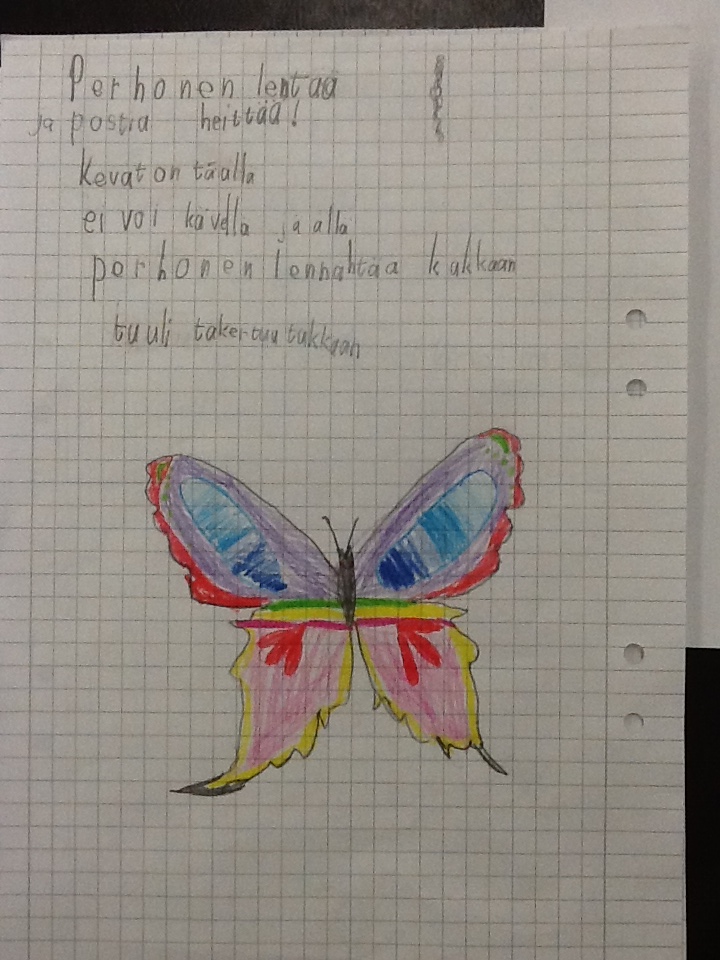 Perhonen lentää
ja postia heittää!
Kevat on täalla
ei voi kävella jäalla
perhonen lennahtaa kukkaan
tuuli takertuu tukkaan